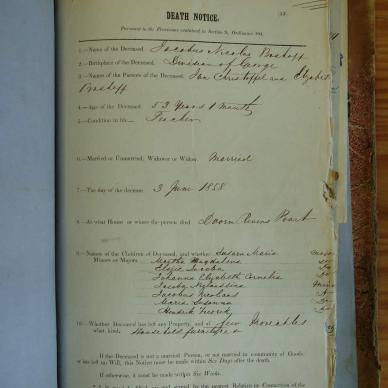 DEATH NOTICE.
Pursuant to the Provisions contained in Section 9, Ordinance 104.
1.—Name of the Deceased Jacobus Nicolas Boshoff
2.—Birthplace of the Deceased Division of George
3.—Names of the Parents of the Deceased Jan Christoffel and Elizabeth
Boshoff
4.—Age of the Deceased 53 Years 1 month
5.—Condition in life Teacher
6.—Married or Unmarried, Widower or Widow Married
7.—The day of the decease 3 June 1858
8.—At what House or where the person died Doorn Rivers Poort
9.—Names of the Children of Deceased, and whether Susara Maria
Minors or Majors Martha Magdalena
Elsje Jacoba
Johanna Elizabeth Cornelia
Jacoba
Jacobus Nicolaas
Maria Susanna
Hendrik Fredrik
10.—Whether Deceased has left any Property, and of few Moveables
what kind, Household furnitures
If the Deceased is not a married Person, or not married in community of Goods,
or has left no Will, this Notice must be made within Six Days after the death.
If otherwise, it must be made within Six Weeks.
filled up and signed by the nearest Relation or Connection of the